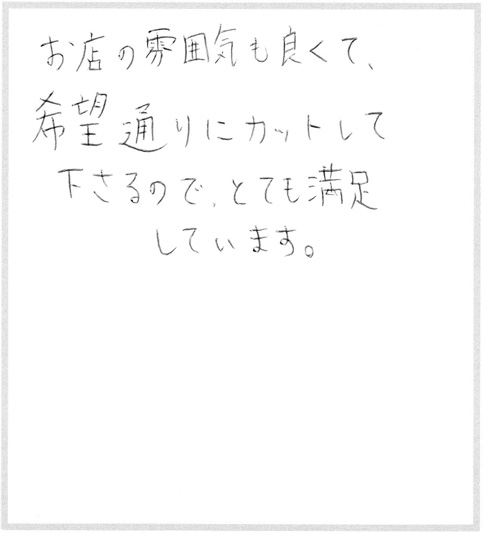 お店の雰囲気も良くて、
希望通りにカットして
下さるので、とても満足
しています。